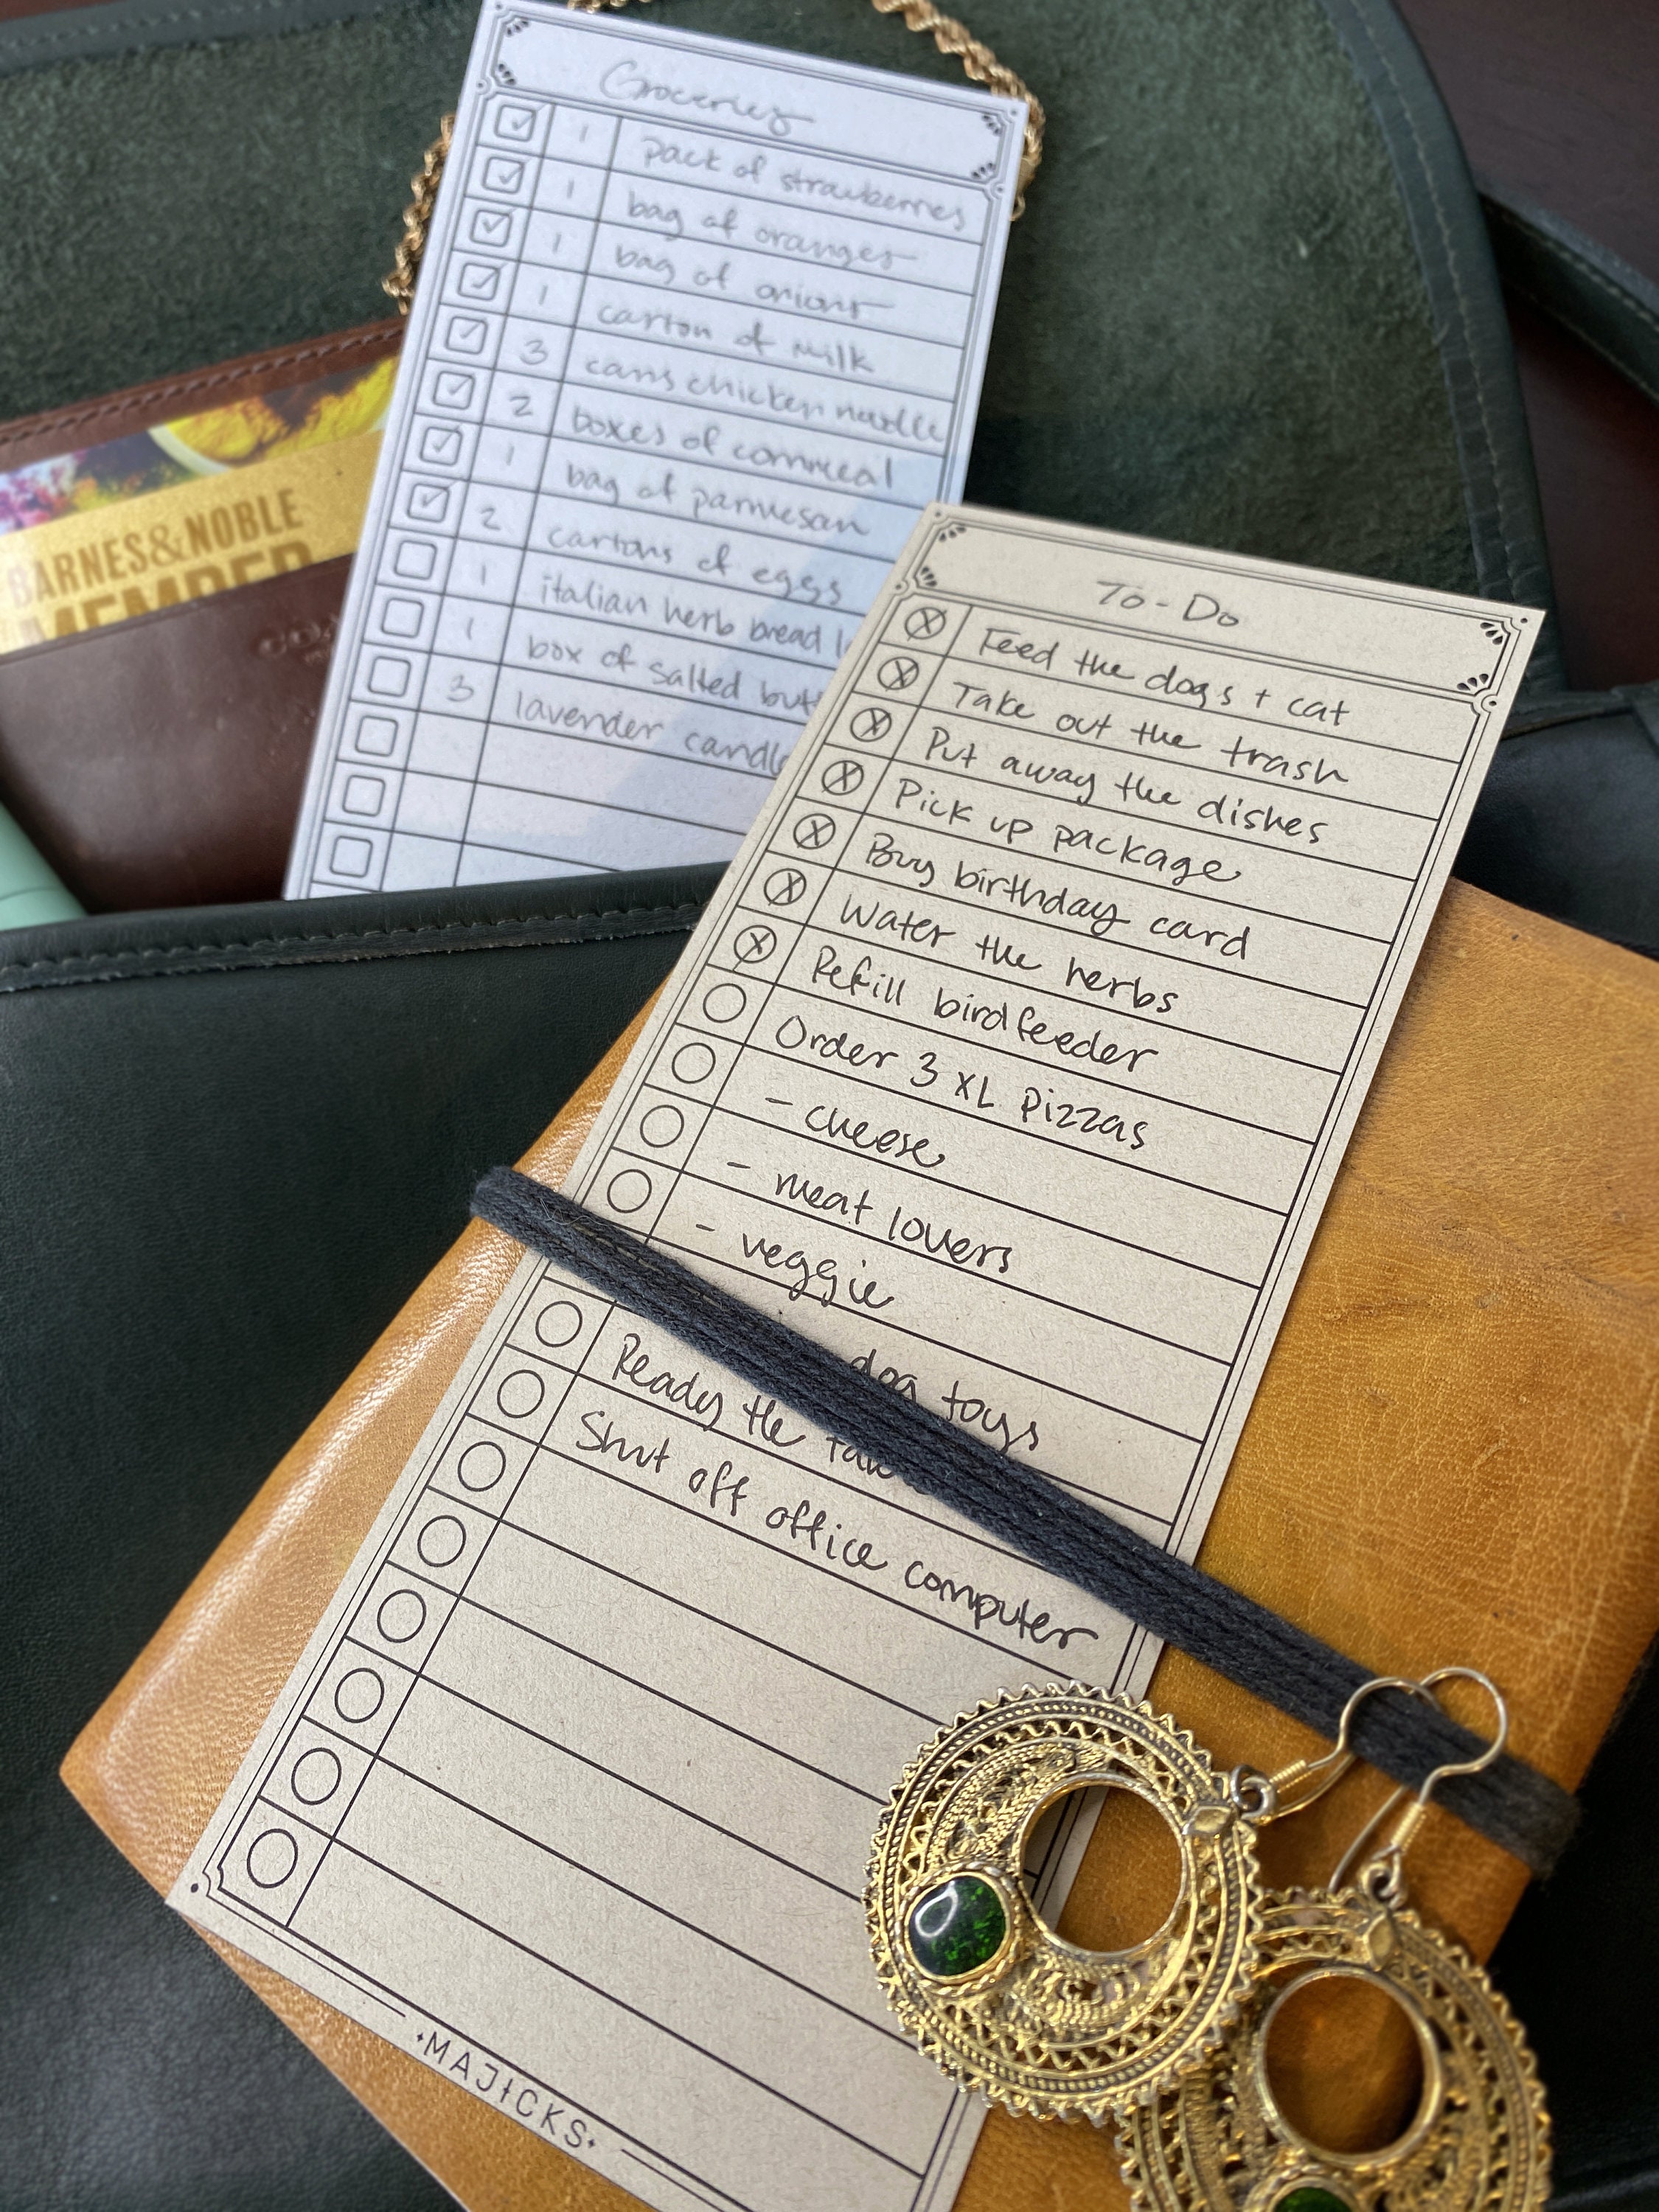 Groceries
1 pack of strawberries
1 bag of oranges
1 bag of onions
1 carton of milk
3 cans chicken noodle
2 boxes of cornmeal
1 bag of parmesan
2 cartons of eggs
1 italian herb bread
1 box of salted
3 lavender
BARNES&NOBLE
MEMBER
To-Do
Feed the dogs + cat
Take out the trash
Put away the dishes
Pick up package
Buy birthday card
Water the herbs
Refill birdfeeder
Order 3 XL pizzas
- cheese
- meat lovers
- veggie
dog toys
Ready the
Shut off office computer
MAJICKS